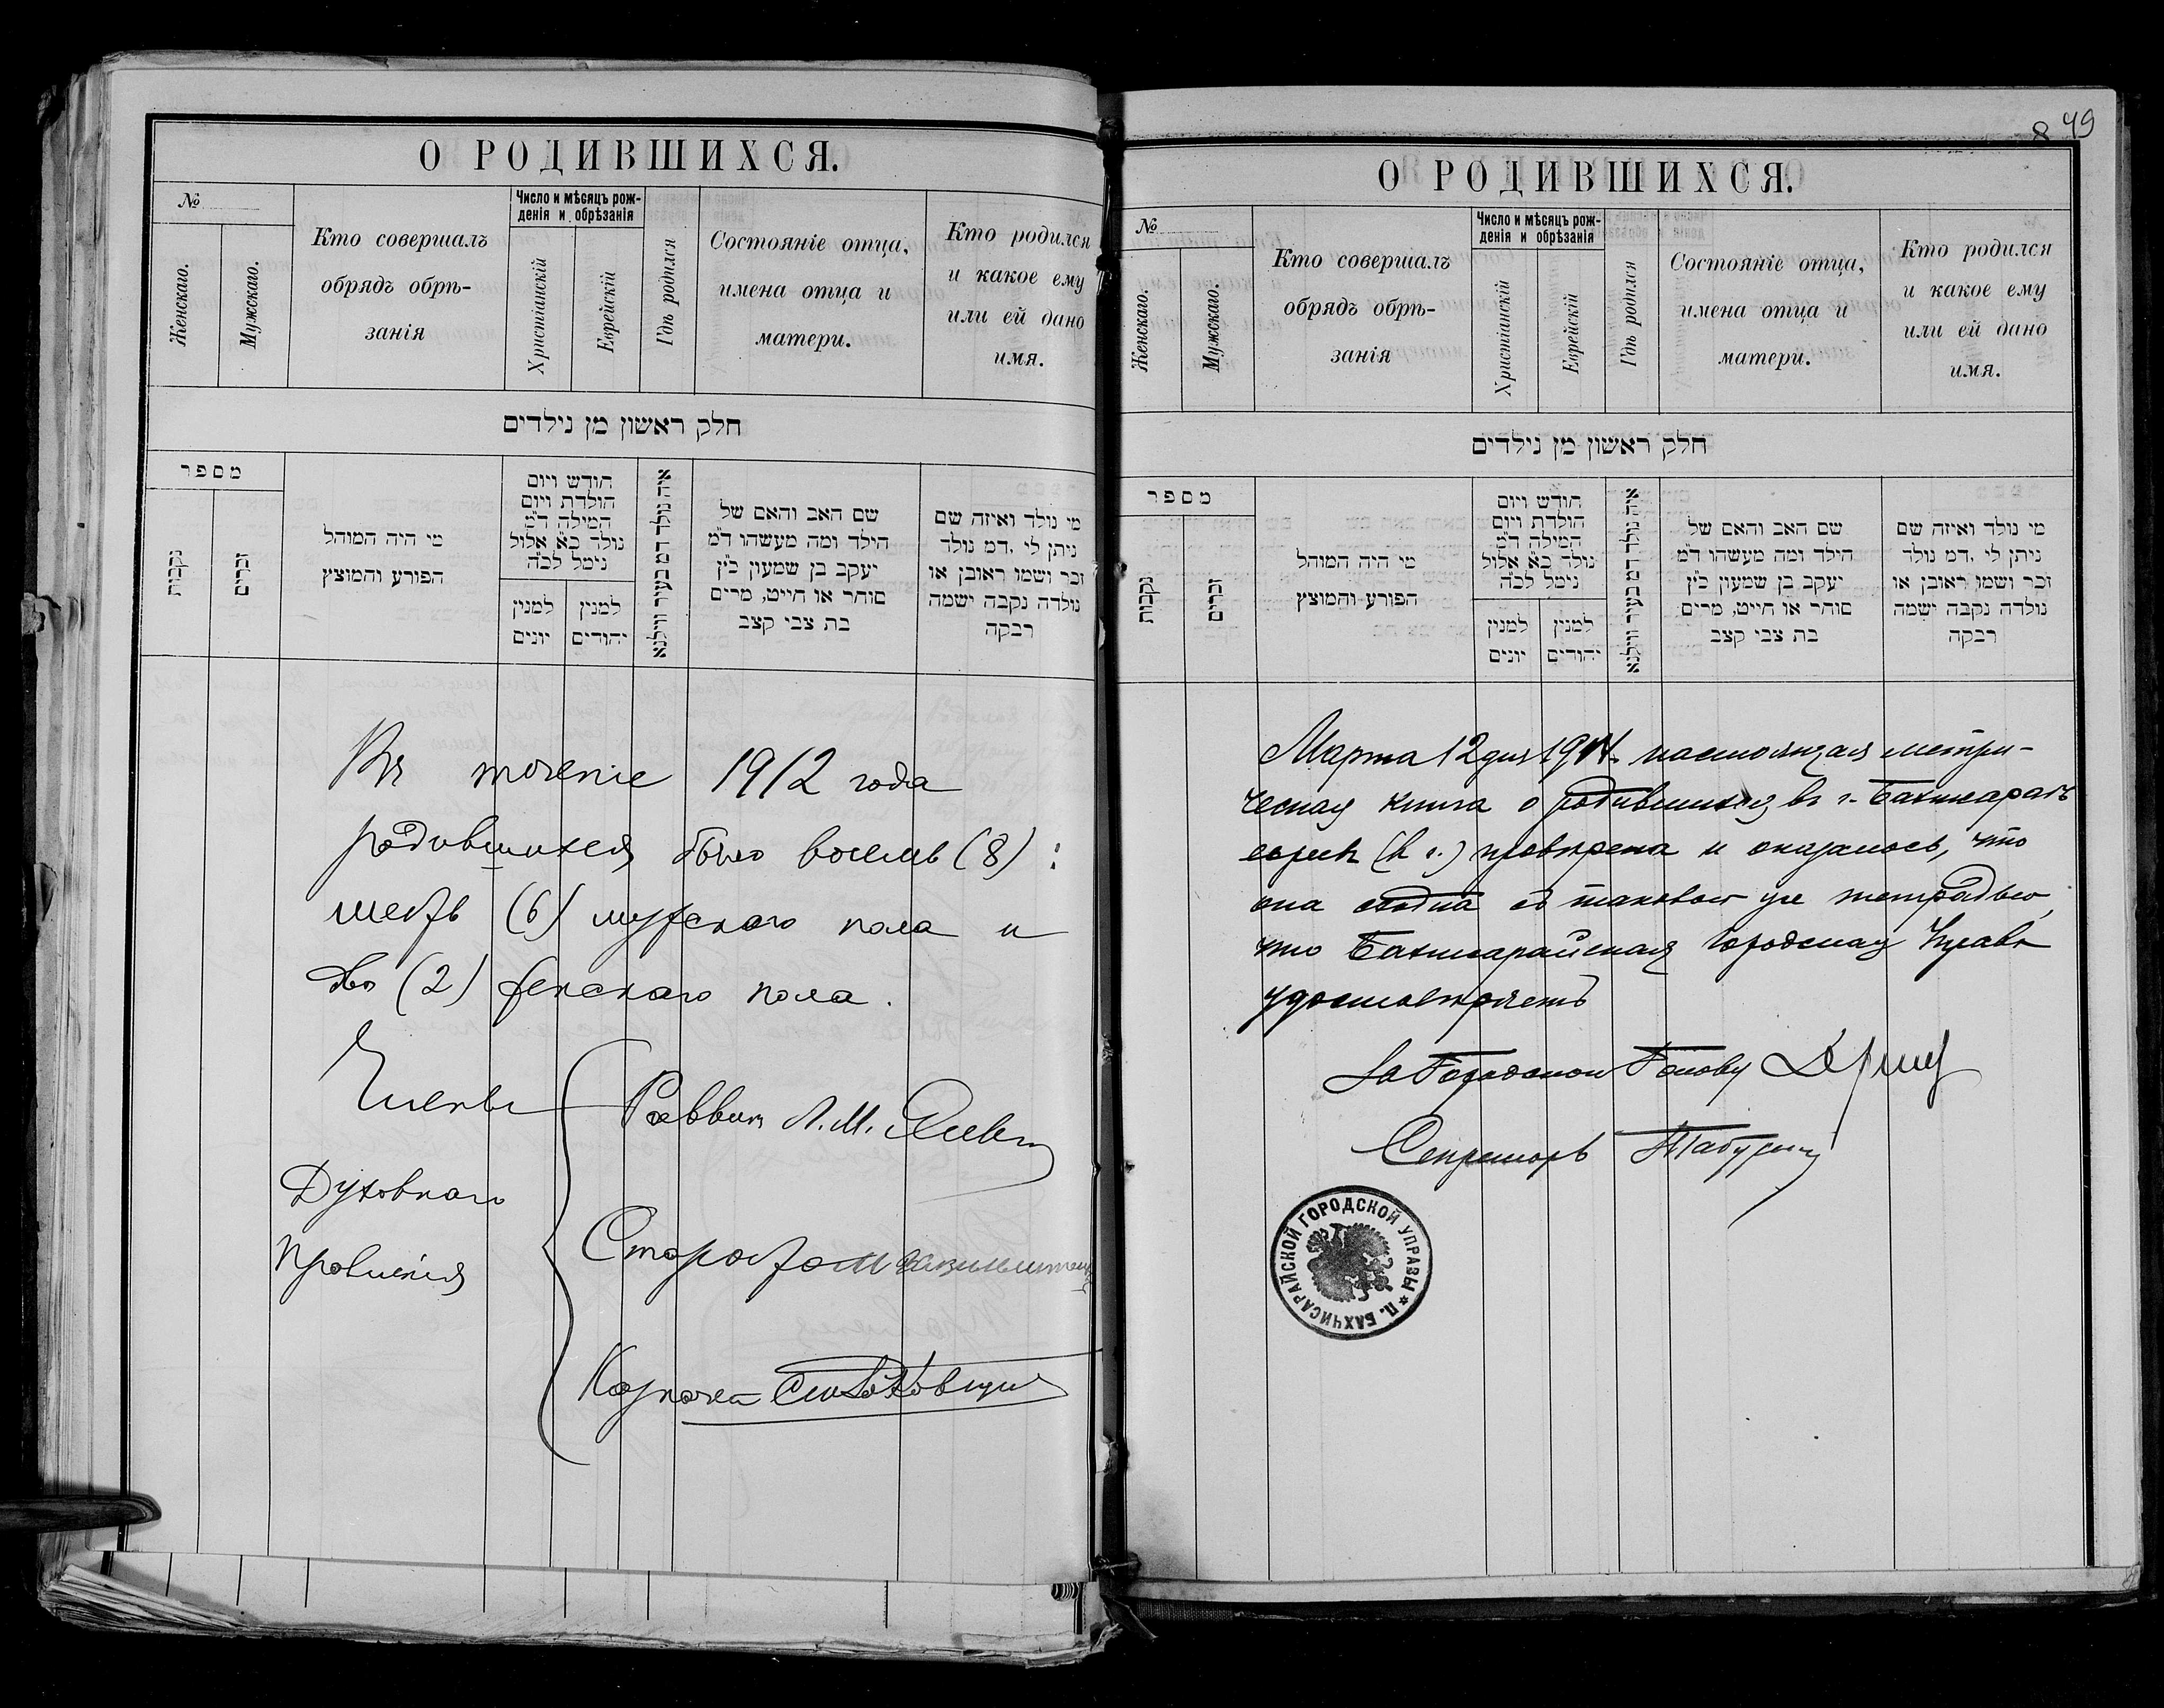 О РОДИВШИХСЯ.
№
Женскаго.
Мужскаго.
Кто совершалъ
обрядъ обрѣ-
занія
Число и мѣсяцъ рож-
денія и обрѣзанія
Христіанскій
Еврейскій
Гдѣ родился
Состояніе отца,
имена отца и
матери.
Кто родился
и какое ему
или ей дано
имя.
חלק ראשון מן נילדים
מספר
נקבות
זכרים
מי היה המוהל
הפורע והמוצץ
חודש ויום
הולדת ויום
המילה ד"מ
נולד כ"א אלול
נימל לכ"ה
למנין
יונים
למנין
יהודים
איה נולד דמ בעיר ווילנא
שם האב והאם של
הילד ומה מעשהו ד"מ
יעקב בן שמעון כ"ץ
סוחר או חייט, מרים
בת צבי קצב
מי נולד ואיזה שם
ניתן לי .דמ נולד
זכר ושמו ראובן או
נולדה נקבה ישמה
רבקה
Въ теченіе 1912 года
родившихся было восемь (8):
шесть (6) мужскаго пола и
два (2) женскаго пола.
Члены
Духовнаго
Правленія
Раввинъ Л. М.
Староста
Казначей
8 49
О РОДИВШИХСЯ.
№
Женскаго.
Мужскаго.
Кто совершалъ
обрядъ обрѣ-
занія
Число и мѣсяцъ рож-
денія и обрѣзанія
Христіанскій
Еврейскій
Гдѣ родился
Состояніе отца,
имена отца и
матери.
Кто родился
и какое ему
или ей дано
имя.
חלק ראשון מן נילדים
מספר
נקבות
זכרים
מי היה המוהל
הפורע והמוצץ
חודש ויום
הולדת ויום
המילה ד"מ
נולד כ"א אלול
נימל לכ"ה
למנין
יונים
למנין
יהודים
איה נולד דמ בעיר ווילנא
שם האב והאם של
הילד ומה מעשהו ד"מ
יעקב בן שמעון כ"ץ
סוחר או חייט, מרים
בת צבי קצב
מי נולד ואיזה שם
ניתן לי .דמ נולד
זכר ושמו ראובן או
נולדה נקבה ישמה
רבקה
Марта 12 дня настоящая метри-
ческая книга о родившихся въ г. Бахчисараѣ
провѣрена и оказалось, что
она сходна съ таковою же тетрадью,
что Бахчисарайская Городская Управа
удостовѣряетъ
За Городского Голову
Секретарь
П. БАХЧИСАРАЙСКОЙ ГОРОДСКОЙ УПРАВЫ *